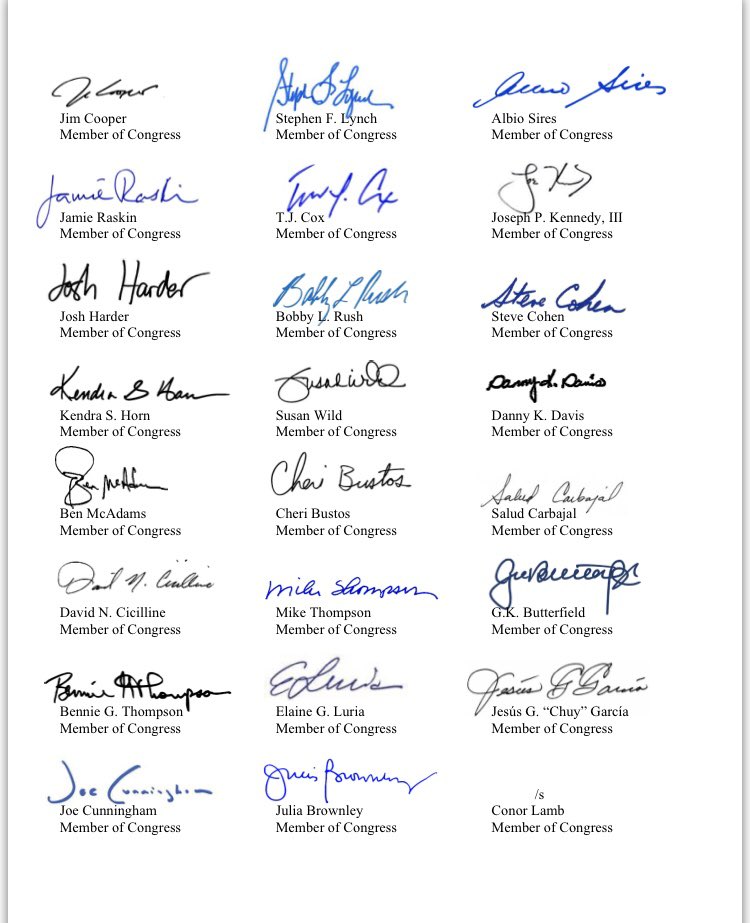 Jim Cooper
Stephen F. Lynch
Albio Sires
Member of Congress
Member of Congress
Member of Congress
Jamie Raskin
Jamie Raskin
T.J. Cox
Joseph P. Kennedy, III
Member of Congress
Member of Congress
Member of Congress
Josh Harder
Bobby L Rush
Steve Cohen
Josh Harder
Bobby L. Rush
Steve Cohen
Member of Congress
Member of Congress
Member of Congress
Kendra S. Horn
Susan Wild
Danny K. Davis
Member of Congress
Member of Congress
Member of Congress
Cheri Bustos
Salud Carbajal
Ben McAdams
Cheri Bustos
Salud Carbajal
Member of Congress
Member of Congress
Member of Congress
David N. Cicilline
Mike Thompson
G.K. Butterfield
Member of Congress
Member of Congress
Member of Congress
Bennie G. Thompson
Elaine G. Luria
Jesús G. “Chuy” García
Member of Congress
Member of Congress
Member of Congress
Joe Cunningham
/s
Joe Cunningham
Julia Brownley
Conor Lamb
Member of Congress
Member of Congress
Member of Congress